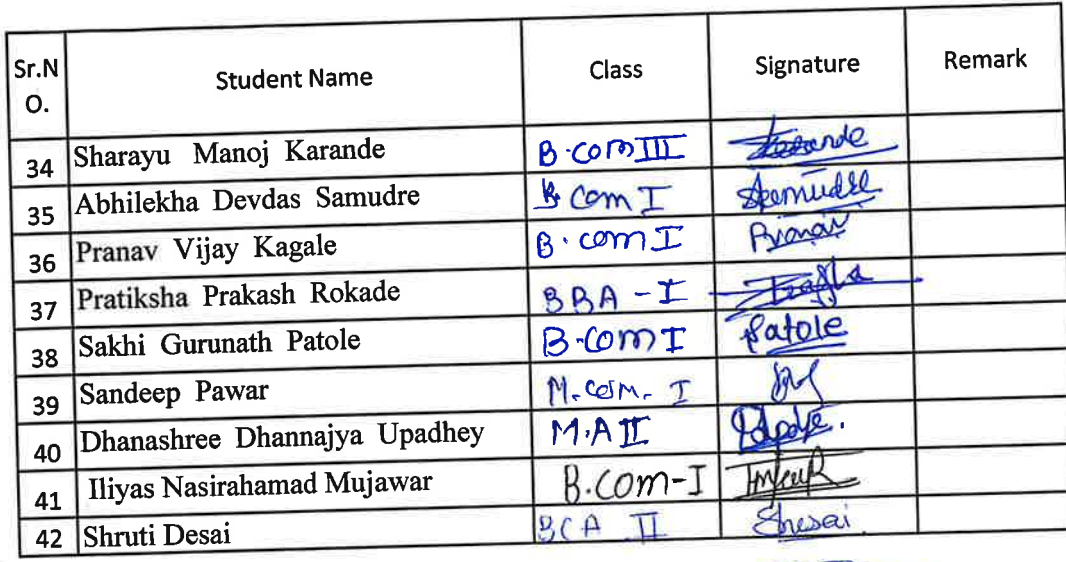 Sr.N Student Name Class Signature Remark
O.
34 Sharayu Manoj Karande B.Com III Karande
35 Abhilekha Devdas Samudre B Com I Samudre
36 Pranav Vijay Kagale B. com I Pranav
37 Pratiksha Prakash Rokade BBA - I
38 Sakhi Gurunath Patole B.Com I Patole
39 Sandeep Pawar M. Com. I
40 Dhanashree Dhannajya Upadhey M.A II
41 Iliyas Nasirahamad Mujawar B.COM-I
42 Shruti Desai BCA II